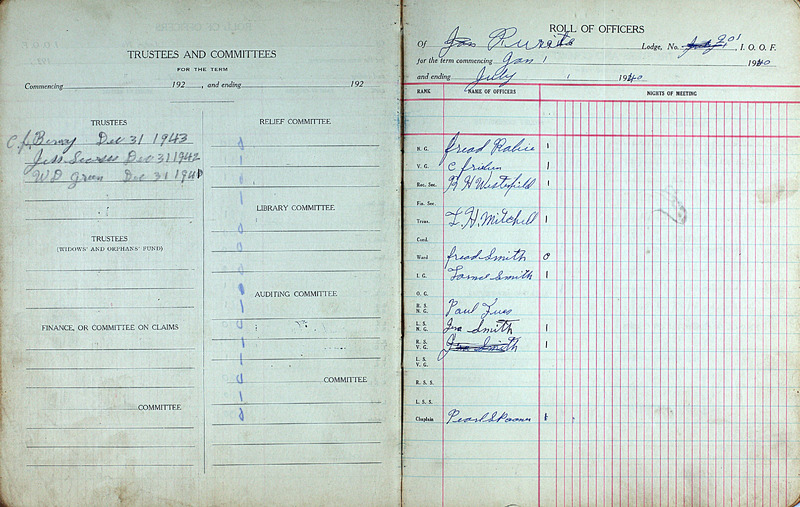 TRUSTEES AND COMMITTEES
FOR THE TERM
Commencing 192 , and ending 192
TRUSTEES
Dec 31 1943
Dec 31 1942
W D Green Dec 31 1941
TRUSTEES
(WIDOWS' AND ORPHANS' FUND)
FINANCE, OR COMMITTEE ON CLAIMS
COMMITTEE
RELIEF COMMITTEE
LIBRARY COMMITTEE
AUDITING COMMITTEE
COMMITTEE
ROLL OF OFFICERS
Of Lodge, No. 201, I. O. O. F.
for the term commencing Jan 1 1940
and ending July 1 1940
RANK NAME OF OFFICERS NIGHTS OF MEETING
N. G. 1
V. G. 1
Rec. Sec. R H Westfield 1
Fin. Sec.
Treas. L. H. Mitchell 1
Cond.
Ward fread Smith 0
I. G. Smith 1
O. G.
R. S. N. G. Paul
L. S. N. G. Ira Smith 1
R. S. V. G. Ira Smith 1
L. S. V. G.
R. S. S.
L. S. S.
Chaplain Pearl 1